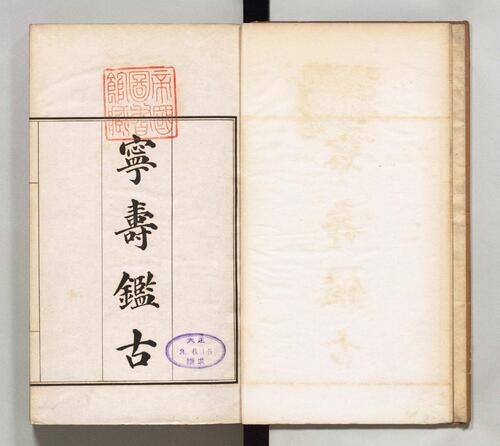 帝國
圖書
館藏
寧壽鑑古
大正
購求